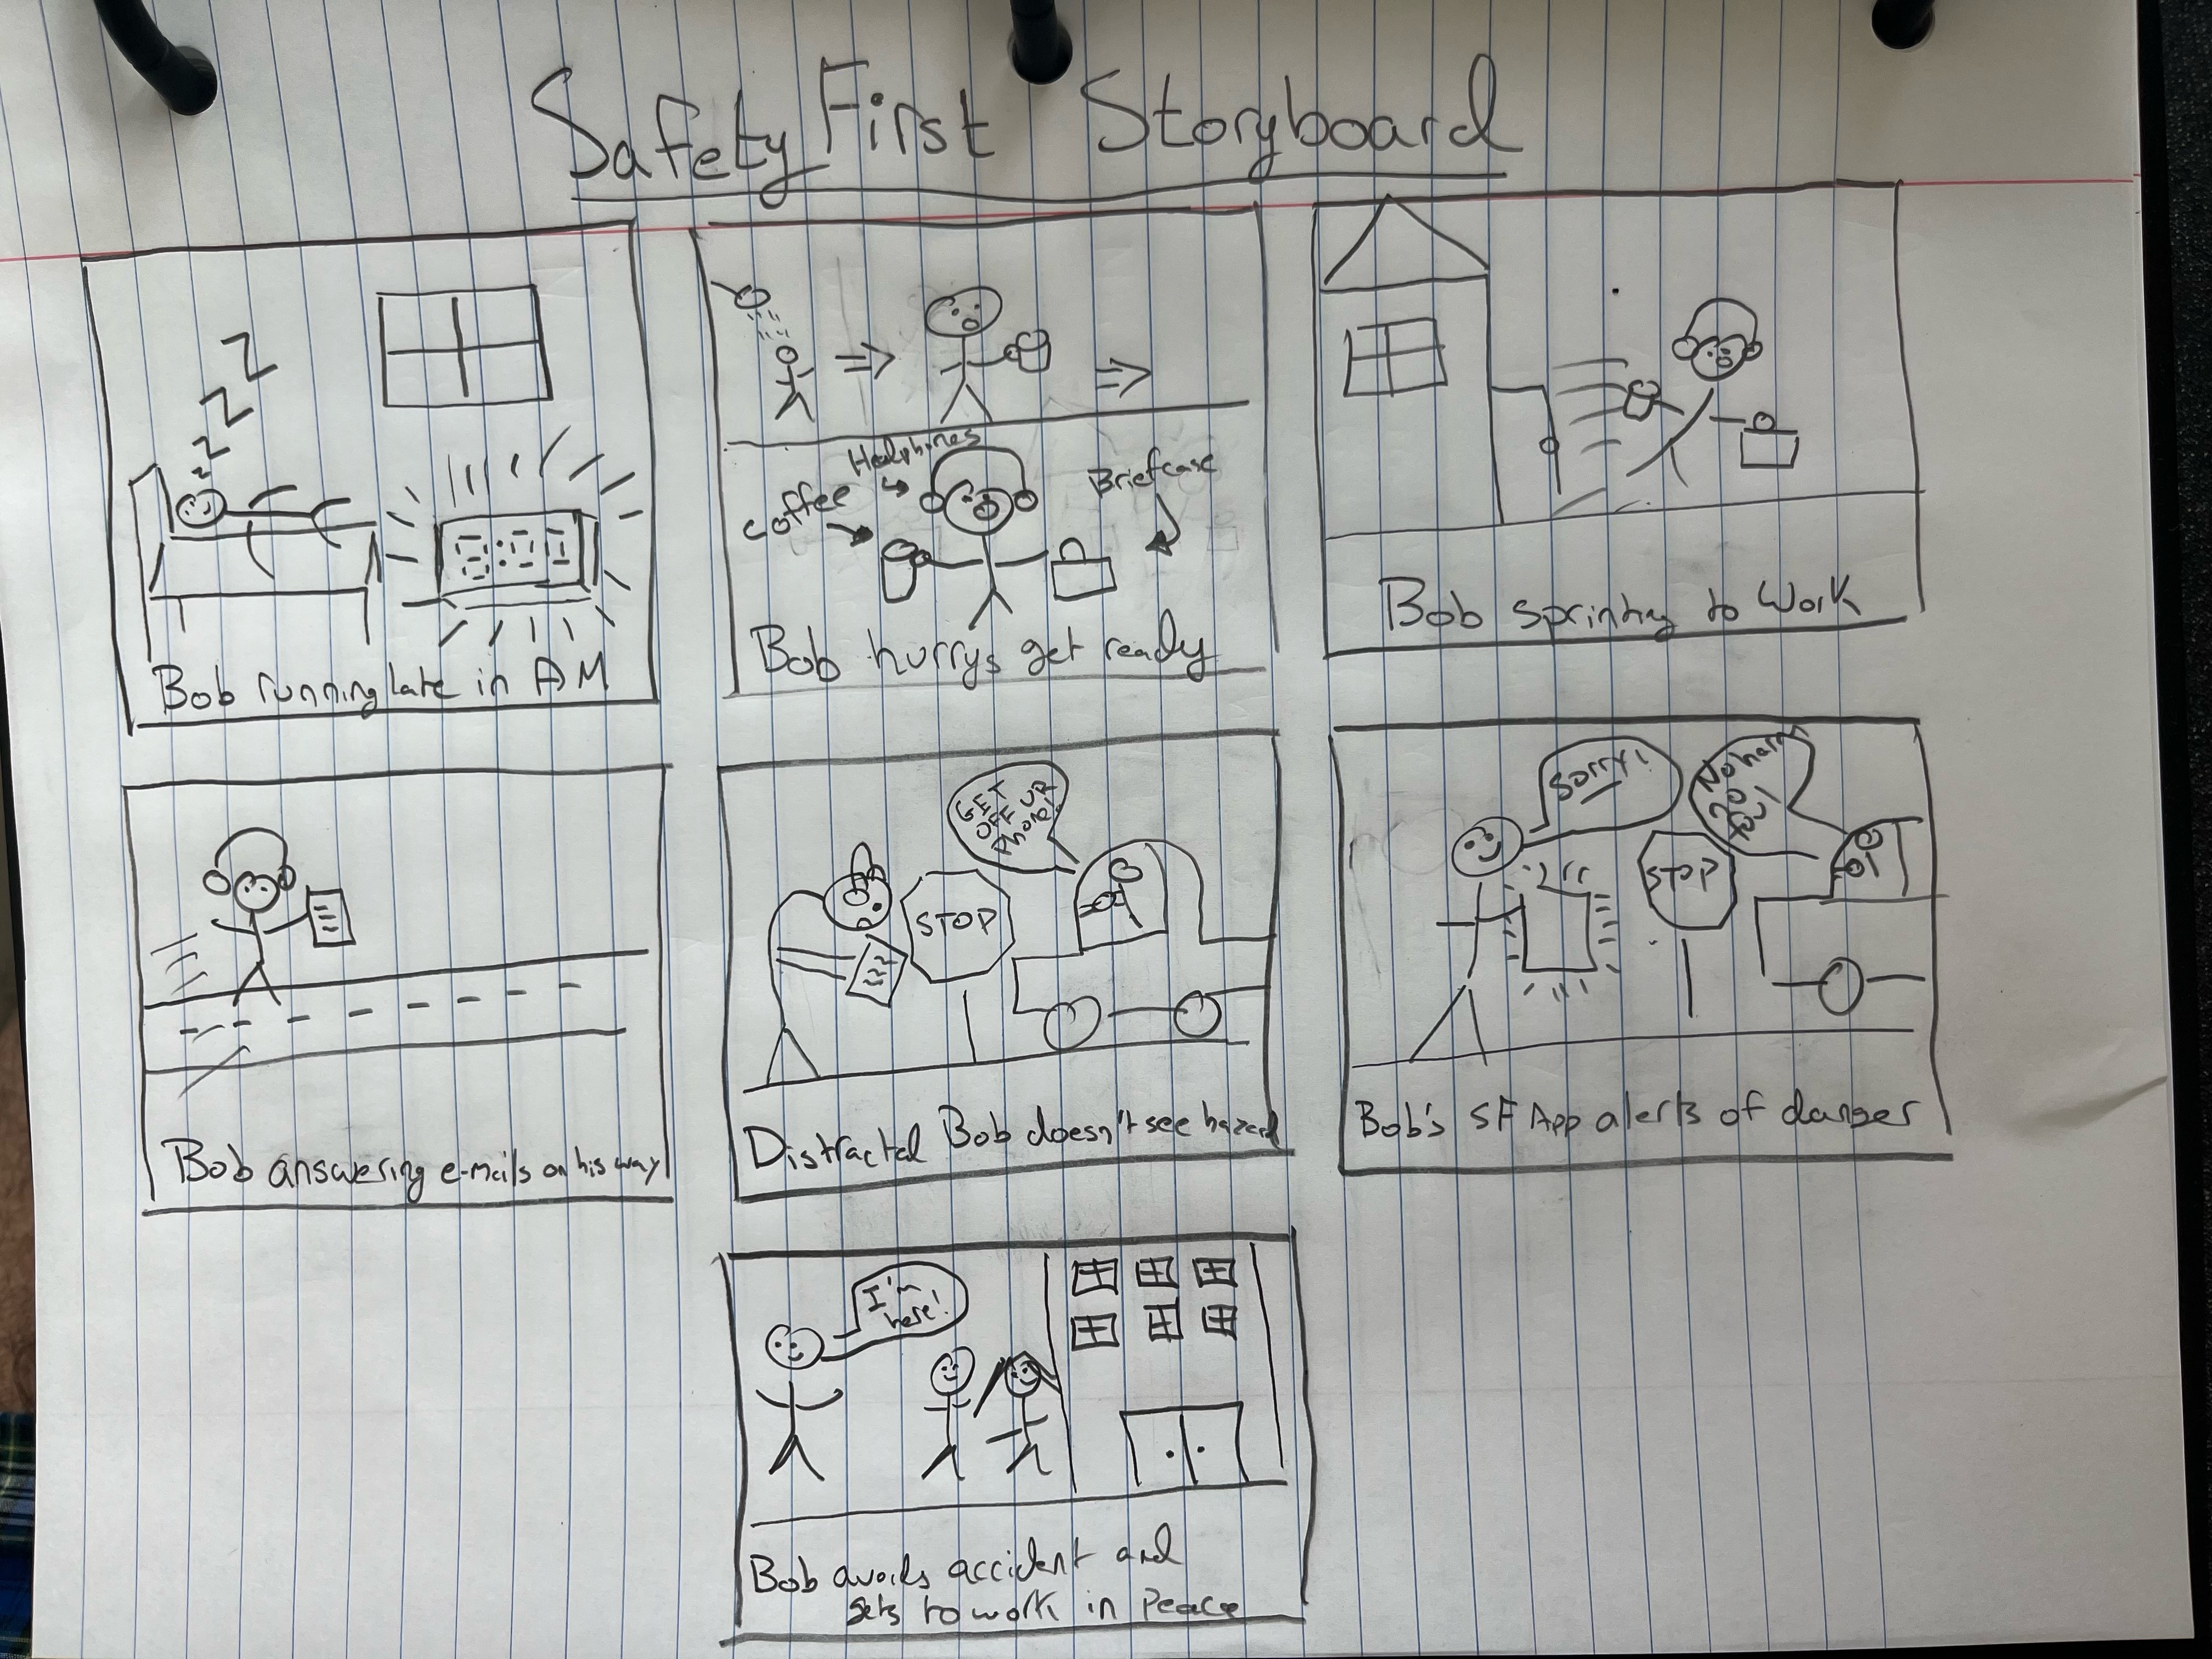 Safety First Storyboard
Z Z Z Z
Bob running late in AM
Headphones
Coffee
Briefcase
Bob hurrys get ready
Bob sprinting to Work
Bob answering e-mails on his way
GET
OFF UR
Phone!
STOP
Distracted Bob doesn't see hazard
Sorry!
No harm
STOP
Bob's SF App alerts of danger
I'm
here!
Bob avoids accident and
gets to work in Peace